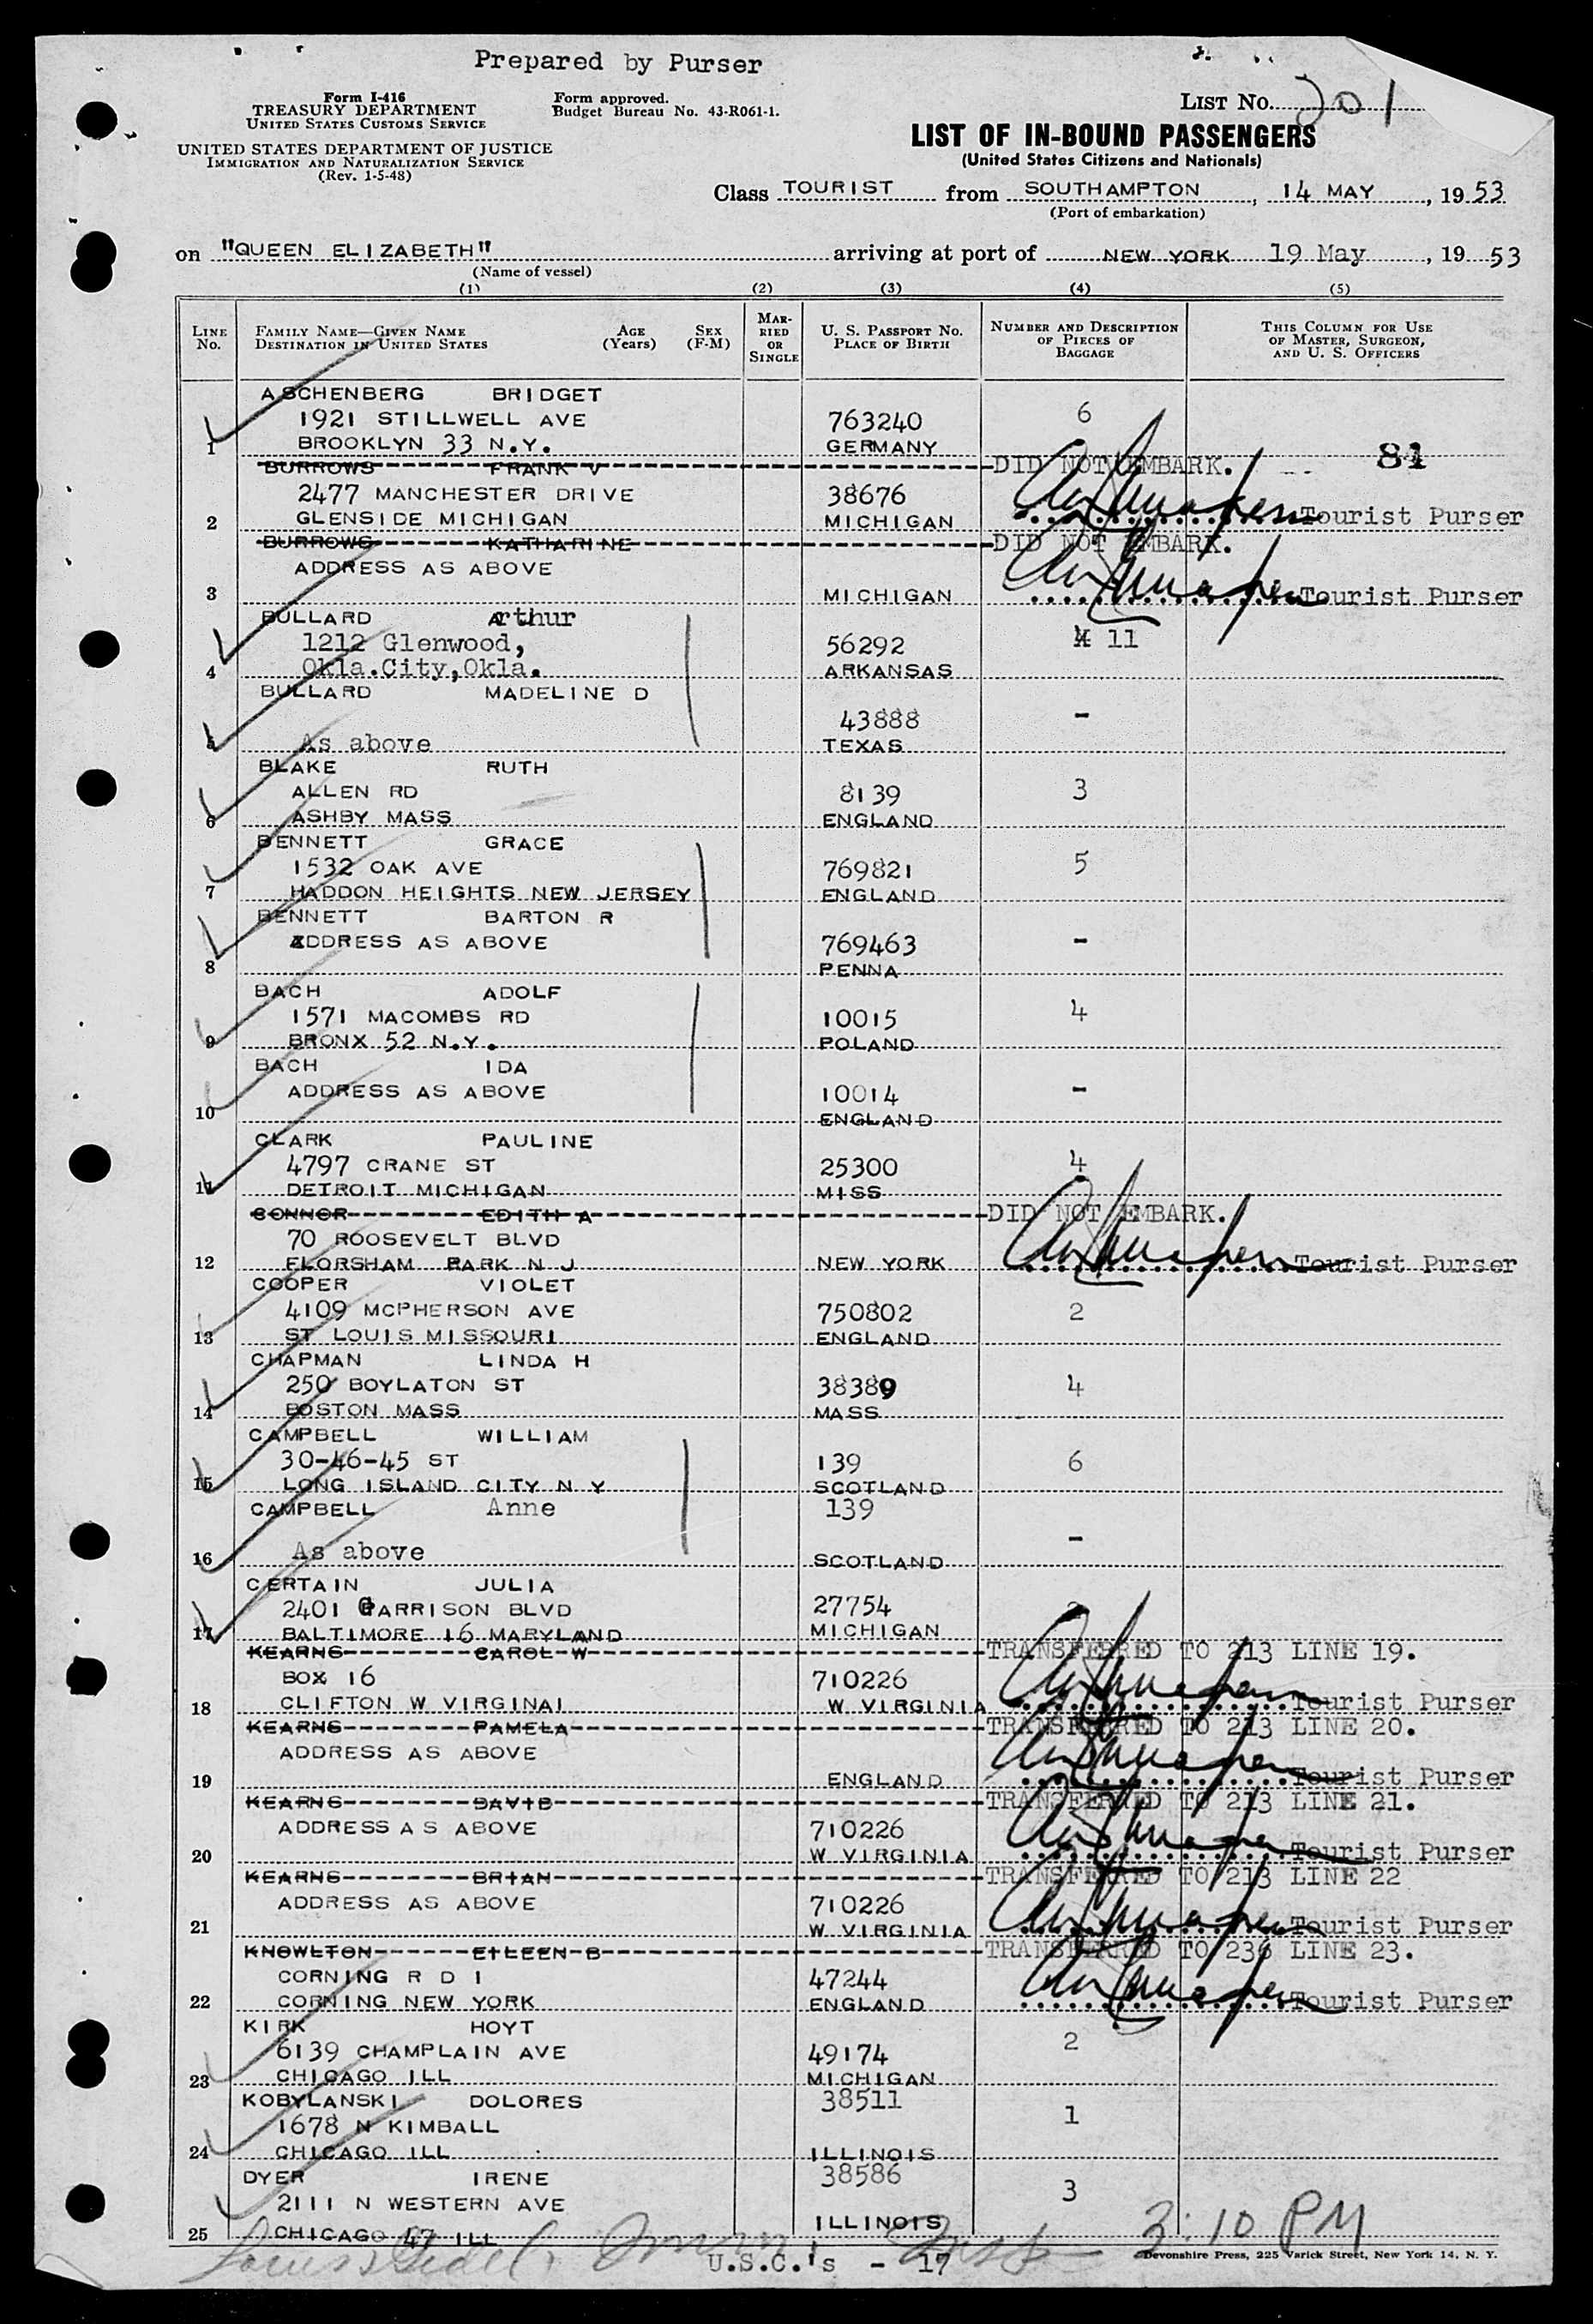 Prepared by Purser
Form I-416
TREASURY DEPARTMENT
UNITED STATES CUSTOMS SERVICE
UNITED STATES DEPARTMENT OF JUSTICE
IMMIGRATION AND NATURALIZATION SERVICE
(Rev. 1-5-48)
Form approved.
Budget Bureau No. 43-R061-1.
LIST No. 201
LIST OF IN-BOUND PASSENGERS
(United States Citizens and Nationals)
Class TOURIST from SOUTHAMPTON, 14 MAY, 1953
(Port of embarkation)
on "QUEEN ELIZABETH" arriving at port of NEW YORK 19 May, 1953
(Name of vessel)
(1) (2) (3) (4) (5)
LINE No.
FAMILY NAME—GIVEN NAME
DESTINATION IN UNITED STATES
AGE (Years)
SEX (F-M)
MARRIED OR SINGLE
U. S. PASSPORT NO.
PLACE OF BIRTH
NUMBER AND DESCRIPTION OF PIECES OF BAGGAGE
THIS COLUMN FOR USE OF MASTER, SURGEON, AND U. S. OFFICERS
ASCHENBERG BRIDGET
1921 STILLWELL AVE 763240 6
1 BROOKLYN 33 N.Y. GERMANY 84
BURROWS FRANK V DID NOT EMBARK.
2477 MANCHESTER DRIVE 38676
2 GLENSIDE MICHIGAN MICHIGAN Tourist Purser
BURROWS KATHARINE DID NOT EMBARK.
ADDRESS AS ABOVE
3 MICHIGAN Tourist Purser
BULLARD Arthur
1212 Glenwood, 56292 11
4 Okla.City,Okla. ARKANSAS
BULLARD MADELINE D
43888 -
5 As above TEXAS
BLAKE RUTH
ALLEN RD 8139 3
6 ASHBY MASS ENGLAND
BENNETT GRACE
1532 OAK AVE 769821 5
7 HADDON HEIGHTS NEW JERSEY ENGLAND
BENNETT BARTON R
ADDRESS AS ABOVE 769463 -
8 PENNA
BACH ADOLF
1571 MACOMBS RD 10015 4
9 BRONX 52 N.Y. POLAND
BACH IDA
ADDRESS AS ABOVE 10014 -
10 ENGLAND
CLARK PAULINE
4797 CRANE ST 25300 4
11 DETROIT MICHIGAN MISS
CONNOR EDITH A DID NOT EMBARK.
70 ROOSEVELT BLVD
12 FLORSHAM PARK N J NEW YORK Tourist Purser
COOPER VIOLET
4109 MCPHERSON AVE 750802 2
13 ST LOUIS MISSOURI ENGLAND
CHAPMAN LINDA H
250 BOYLATON ST 38389 4
14 BOSTON MASS MASS
CAMPBELL WILLIAM
30-46-45 ST 139 6
15 LONG ISLAND CITY N Y SCOTLAND
CAMPBELL Anne 139
-
16 As above SCOTLAND
CERTAIN JULIA
2401 GARRISON BLVD 27754
17 BALTIMORE 16 MARYLAND MICHIGAN
KEARNS CAROL W TRANSFERRED TO 213 LINE 19.
BOX 16 710226
18 CLIFTON W VIRGINAI W VIRGINIA Tourist Purser
KEARNS PAMELA TRANSFERRED TO 213 LINE 20.
ADDRESS AS ABOVE
19 ENGLAND Tourist Purser
KEARNS DAVID TRANSFERRED TO 213 LINE 21.
ADDRESS AS ABOVE 710226
20 W VIRGINIA Tourist Purser
KEARNS BRIAN TRANSFERRED TO 213 LINE 22
ADDRESS AS ABOVE 710226
21 W VIRGINIA Tourist Purser
KNOWLTON EILEEN B TRANSFERRED TO 236 LINE 23.
CORNING R D 1 47244
22 CORNING NEW YORK ENGLAND Tourist Purser
KIRK HOYT
6139 CHAMPLAIN AVE 49174 2
23 CHICAGO ILL MICHIGAN
KOBYLANSKI DOLORES 38511
1678 N KIMBALL 1
24 CHICAGO ILL ILLINOIS
DYER IRENE 38586
2111 N WESTERN AVE 3
25 CHICAGO 47 ILL ILLINOIS
3:10 PM
U.S.C.'s - 17
Devonshire Press, 225 Varick Street, New York 14, N. Y.